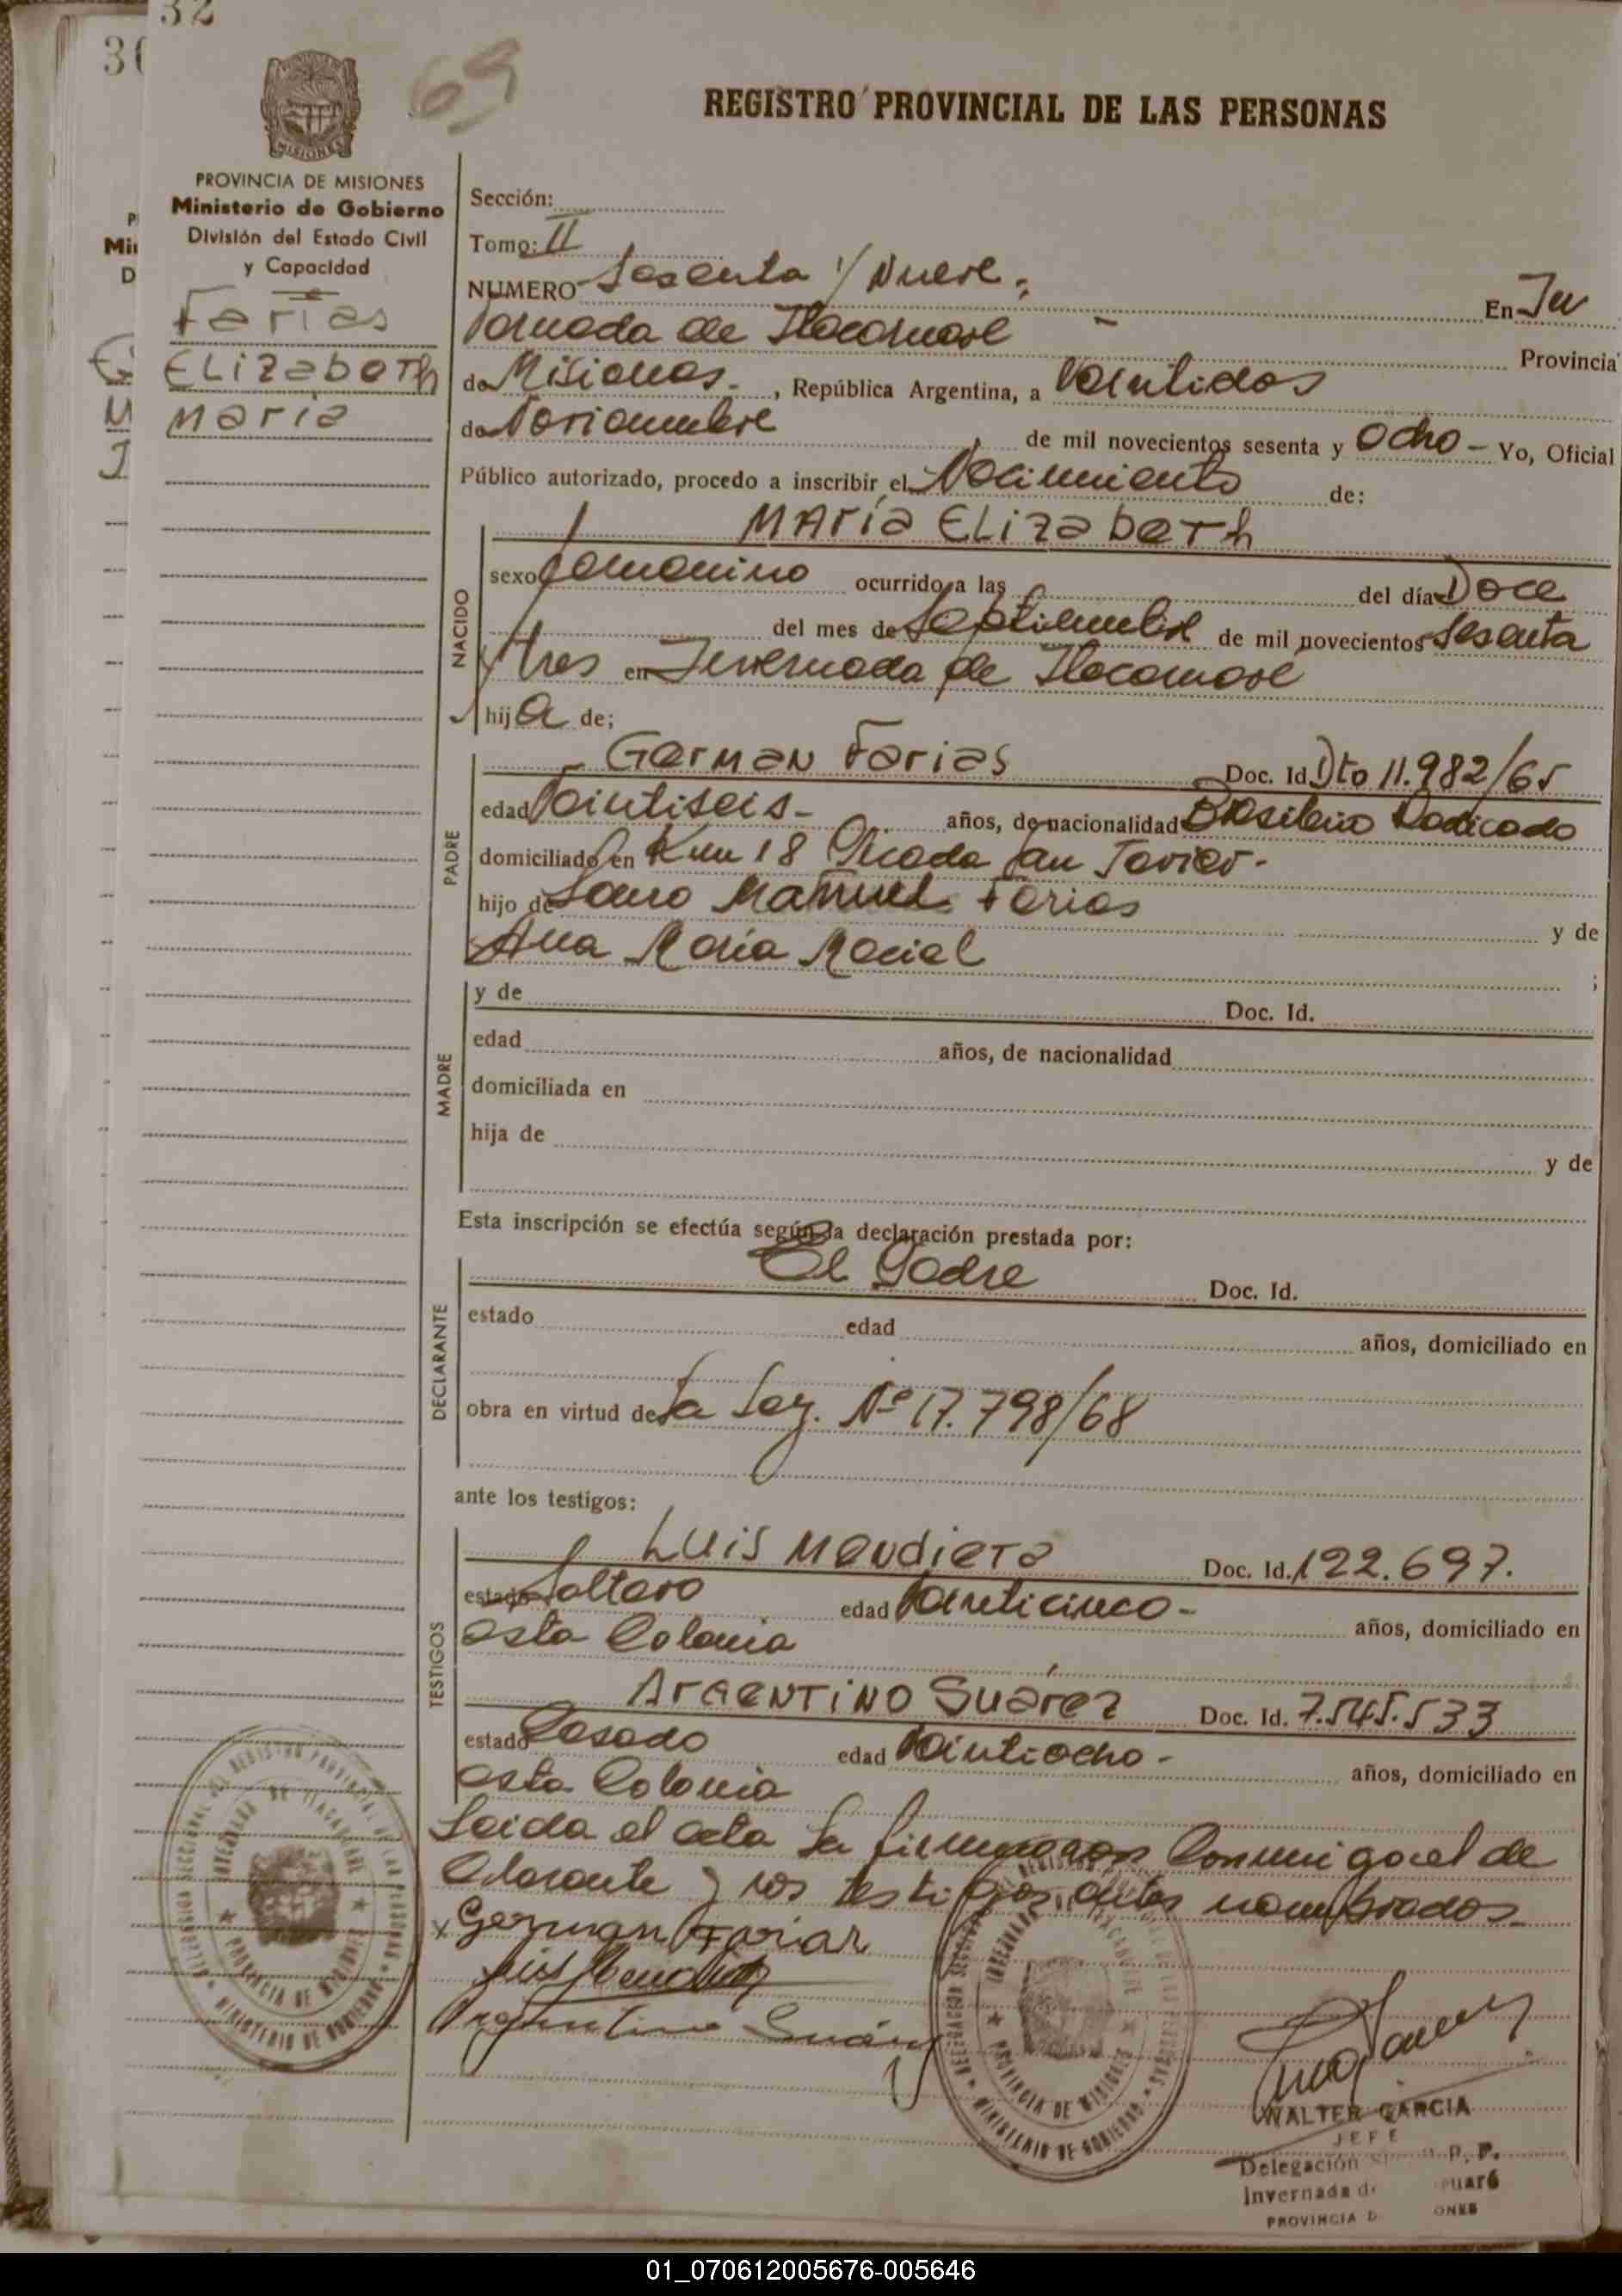 32
30
69
REGISTRO PROVINCIAL DE LAS PERSONAS
PROVINCIA DE MISIONES
Ministerio de Gobierno
División del Estado Civil
y Capacidad
Farías
ELizabeth
María
Sección:
Tomo: II
NUMERO Sesenta y Nueve. En In
vernada de Itacaruaré Provincia
de Misiones. , República Argentina, a Veintidos
de Noviembre de mil novecientos sesenta y Ocho - Yo, Oficial
Público autorizado, procedo a inscribir el Nacimiento de:
NACIDO
MARía ELizabeth
sexo femenino ocurrido a las del día Doce
del mes de Septiembre de mil novecientos sesenta
y tres en Invernada de Itacaruaré
hija de;
PADRE
German Farias Doc. Id. Dto 11.982/65
edad Veintiseis - años, de nacionalidad Brasileño Radicado
domiciliado en Km 18 Picada San Javier -
hijo de Lauro Manuel Farias y de
Ana María Maciel ;
MADRE
y de Doc. Id.
edad años, de nacionalidad
domiciliada en
hija de y de
Esta inscripción se efectúa según la declaración prestada por:
DECLARANTE
El Padre Doc. Id.
estado edad años, domiciliado en
obra en virtud de La Ley. Nº 17.798/68
ante los testigos:
TESTIGOS
Luis Mendieta Doc. Id. 122.697.
estado Soltero edad Veinticinco - años, domiciliado en
esta Colonia
Argentino Suárez Doc. Id. 7.545.533
estado Casado edad Veintiocho - años, domiciliado en
esta Colonia
Leida el acta La firmaron Conmigo el de
clarante y los testigos antes nombrados
x German Farias
Luis Mendieta
Argentino Suárez
WALTER GARCIA
JEFE
Delegación P. P.
Invernada d uaré
PROVINCIA D ONES
PROVINCIA DE MISIONES
MINISTERIO DE GOBIERNO
PROVINCIA DE MISIONES
MINISTERIO DE GOBIERNO
01_070612005676-005646